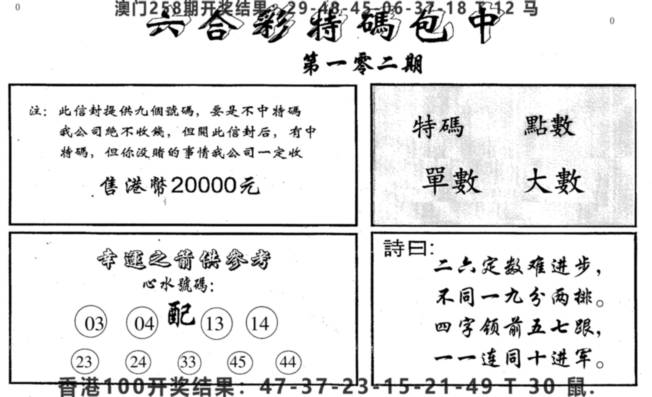 澳门258期开奖结果：29-48-45-06-37-18 T 12 马
六合彩特碼包中
第一零二期
注：此信封提供九個號碼，要是不中特碼
我公司絶不收錢，但開此信封后，有中
特碼，但你没賭的事情我公司一定收
售港幣20000元
特碼 點數
單數 大數
幸運之箭供參考
心水號碼：
03 04 配 13 14
23 24 33 45 44
詩曰：
二六定数难进步，
不同一九分两排。
四字领前五七跟，
一一连同十进军。
香港100开奖结果：47-37-23-15-21-49 T 30 鼠.
0
0